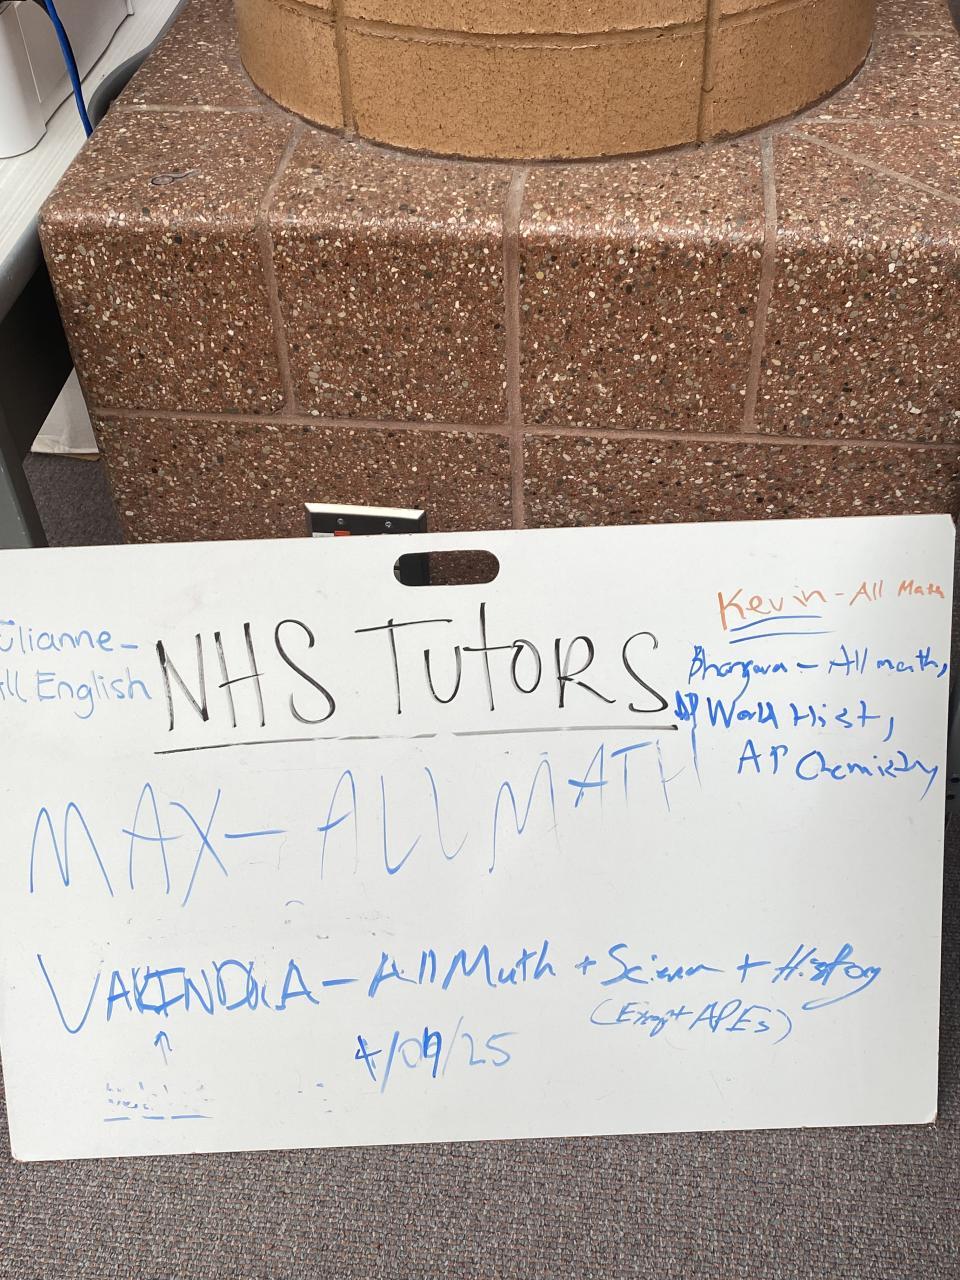 ulianne-
ll English
NHS TutORS
Kevin - All Math
Bhargava - All math,
AP World Hist,
AP Chemistry
MAX - ALL MATH
- All Math + Science + History
(Except APEs)
4/09/25